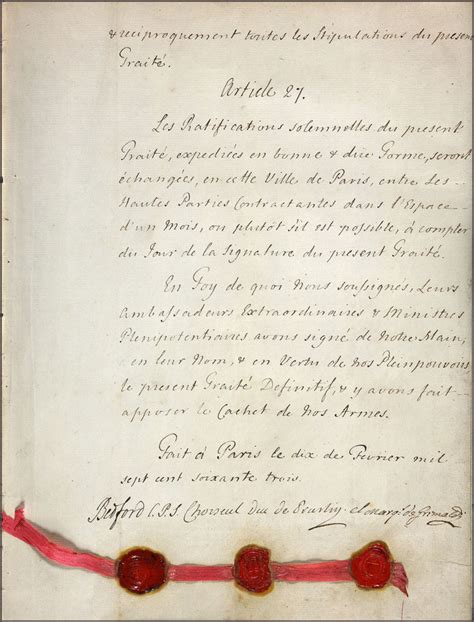 & reciproquement toutes les Stipulations du present
Traité.
Article 27.
Les Ratifications solemnelles du present
Traité, expediées en bonne & düe Forme, seront
échangées, en cette Ville de Paris, entre Les
Hautes Parties Contractantes dans l'Espace
d'un Mois, ou plutôt s'il est possible, à compter
du Jour de la Signature du present Traité.
En Foy de quoi Nous soussignés, Leurs
Ambassadeurs Extraordinaires & Ministres
Plenipotentiaires avons signé de Notre Main,
en leur Nom, & en Vertu de nos Pleinpouvoirs,
le present Traité Definitif, & y avons fait
apposer le Cachet de nos Armes.
Fait à Paris le dix de Fevrier mil
sept cent soixante trois.
Bedford C.P.S. Choiseul Duc de Praslin. el Marq. de Grimaldi